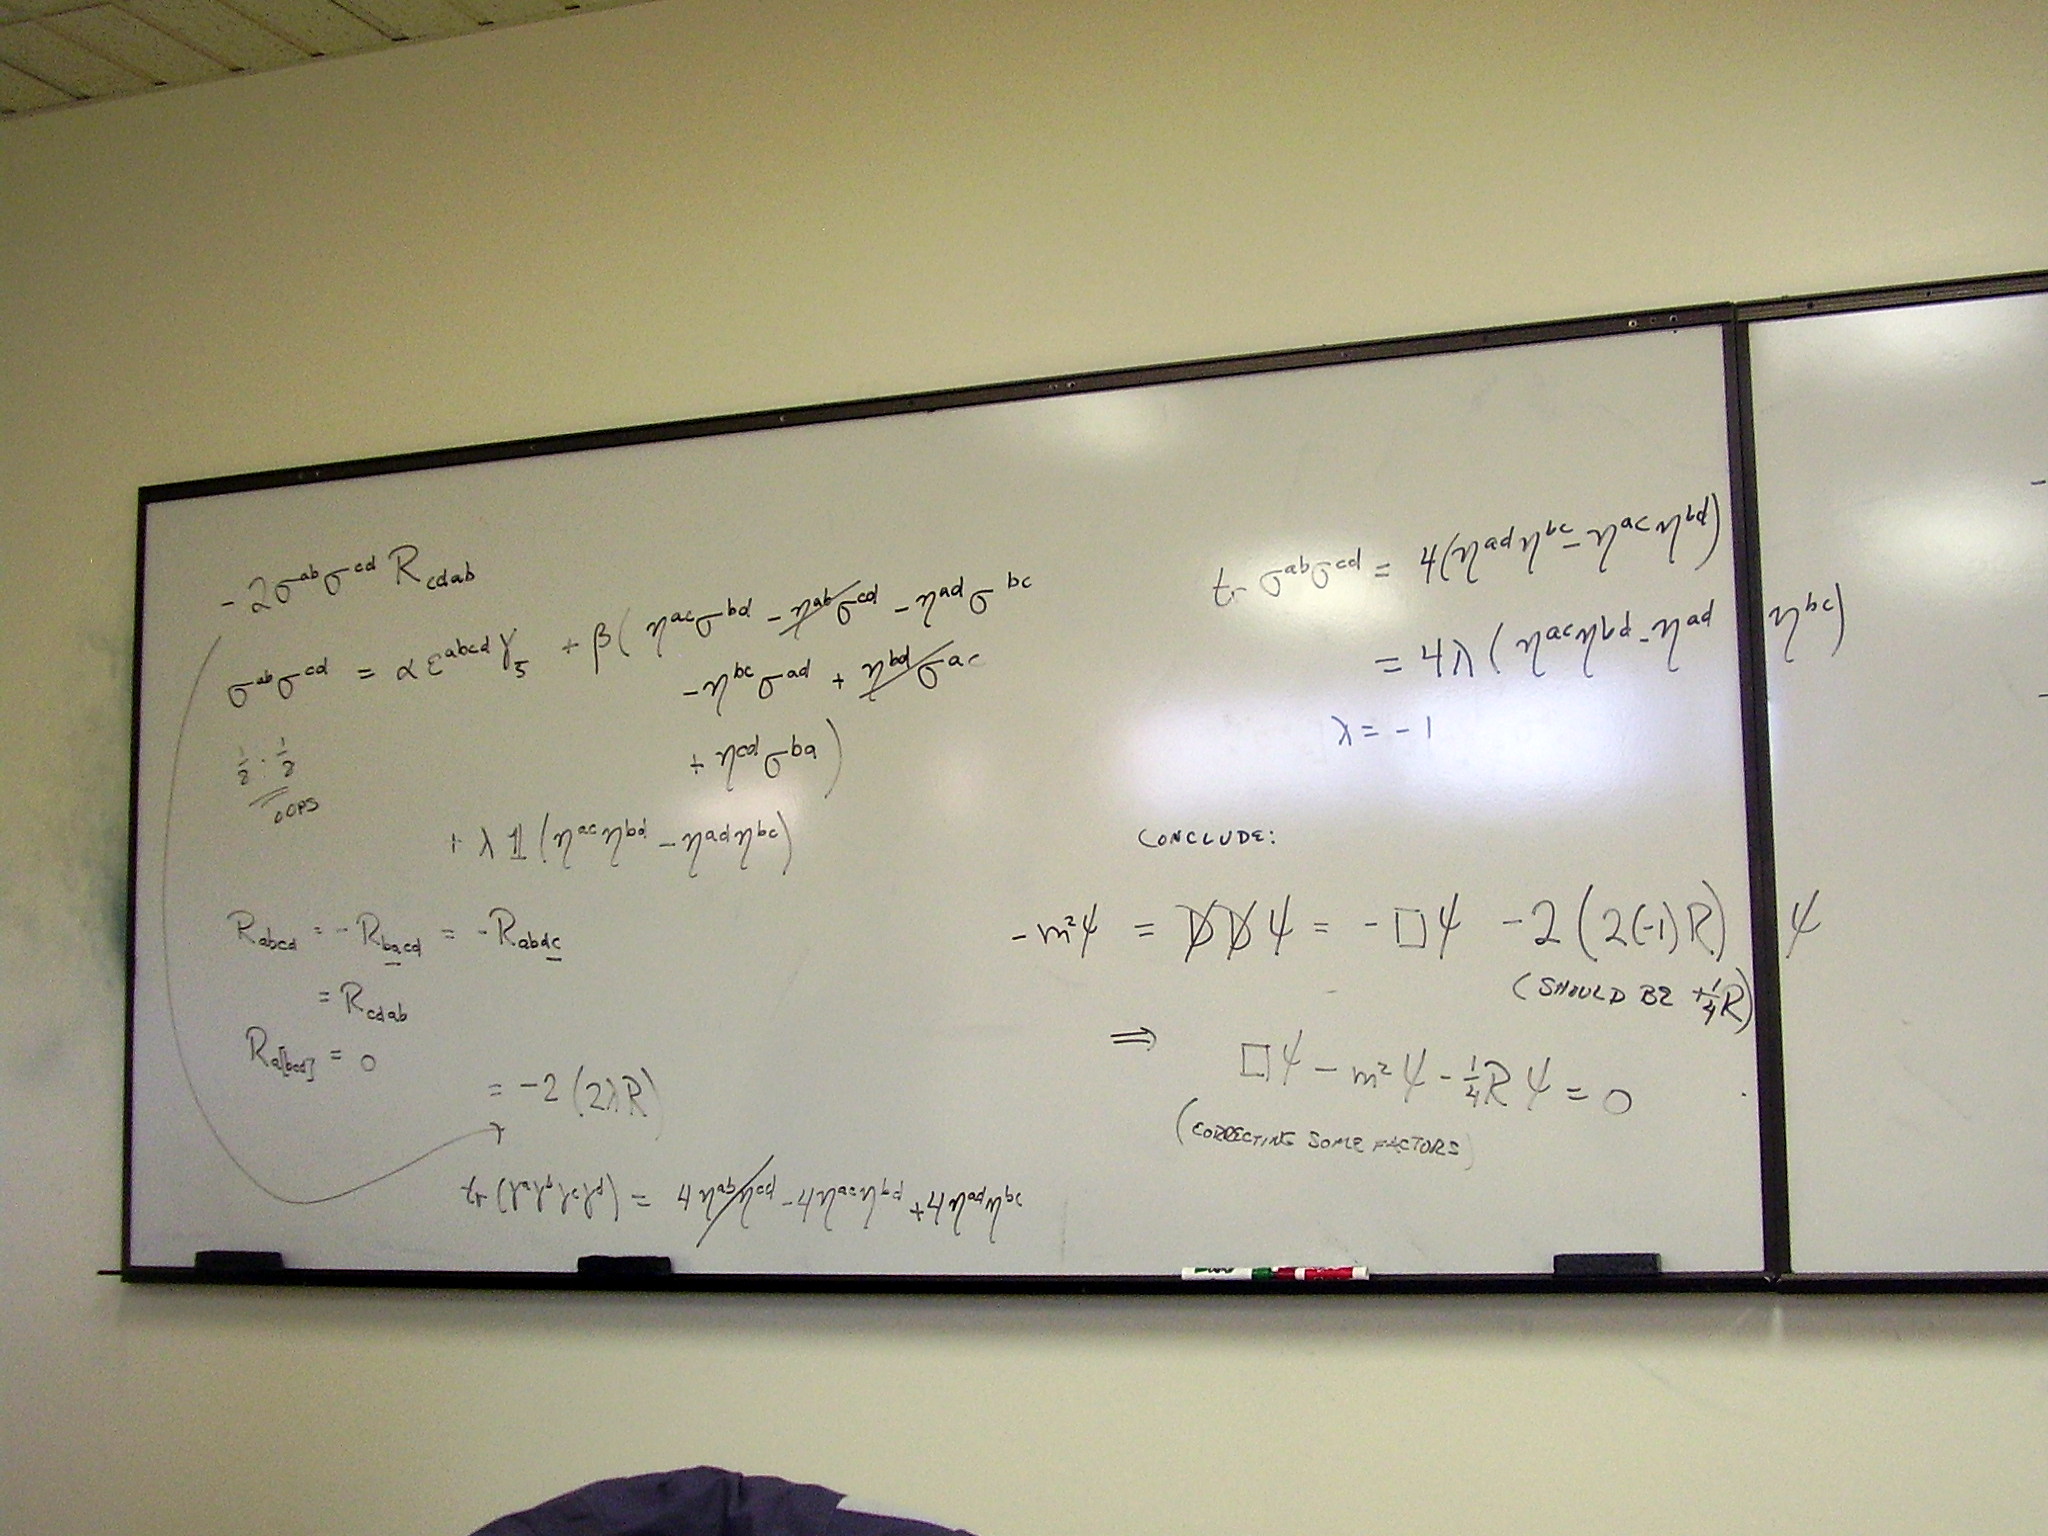 -2σ^{ab}σ^{cd} R_{cdab}
σ^{ab}σ^{cd} = α ε^{abcd} γ_5 + β(η^{ac}σ^{bd} - η^{ab}σ^{cd} - η^{ad}σ^{bc}
- η^{bc}σ^{ad} + η^{bd}σ^{ac}
+ η^{cd}σ^{ab})
1/8 · 1/8
OOPS
+ λ 𝟙 (η^{ac}η^{bd} - η^{ad}η^{bc})
R_{abcd} = -R_{bacd} = -R_{abdc}
= R_{cdab}
R_{a[bcd]} = 0
= -2(2λR)
tr(γ^aγ^bγ^cγ^d) = 4η^{ab}η^{cd} - 4η^{ac}η^{bd} + 4η^{ad}η^{bc}
tr σ^{ab}σ^{cd} = 4(η^{ad}η^{bc} - η^{ac}η^{bd})
= 4λ(η^{ac}η^{bd} - η^{ad}η^{bc})
λ = -1
CONCLUDE:
-m²ψ = D̸D̸ψ = -□ψ -2(2(-1)R)ψ
(SHOULD BE +1/4 R)
⇒ □ψ - m²ψ - 1/4 Rψ = 0
(CORRECTING SOME FACTORS)